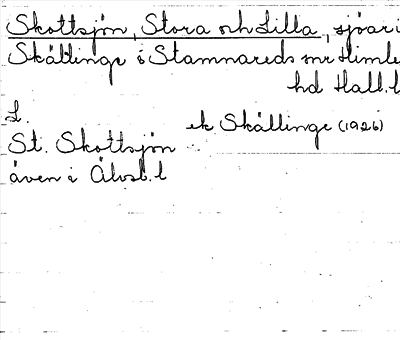 Skottsjön, Stora och Lilla, sjöar i
Skällinge i Stamnareds sn Himle
hd Hall. l
L.
ek Skällinge (1926)
St. Skottsjön
även i Älvsb. l